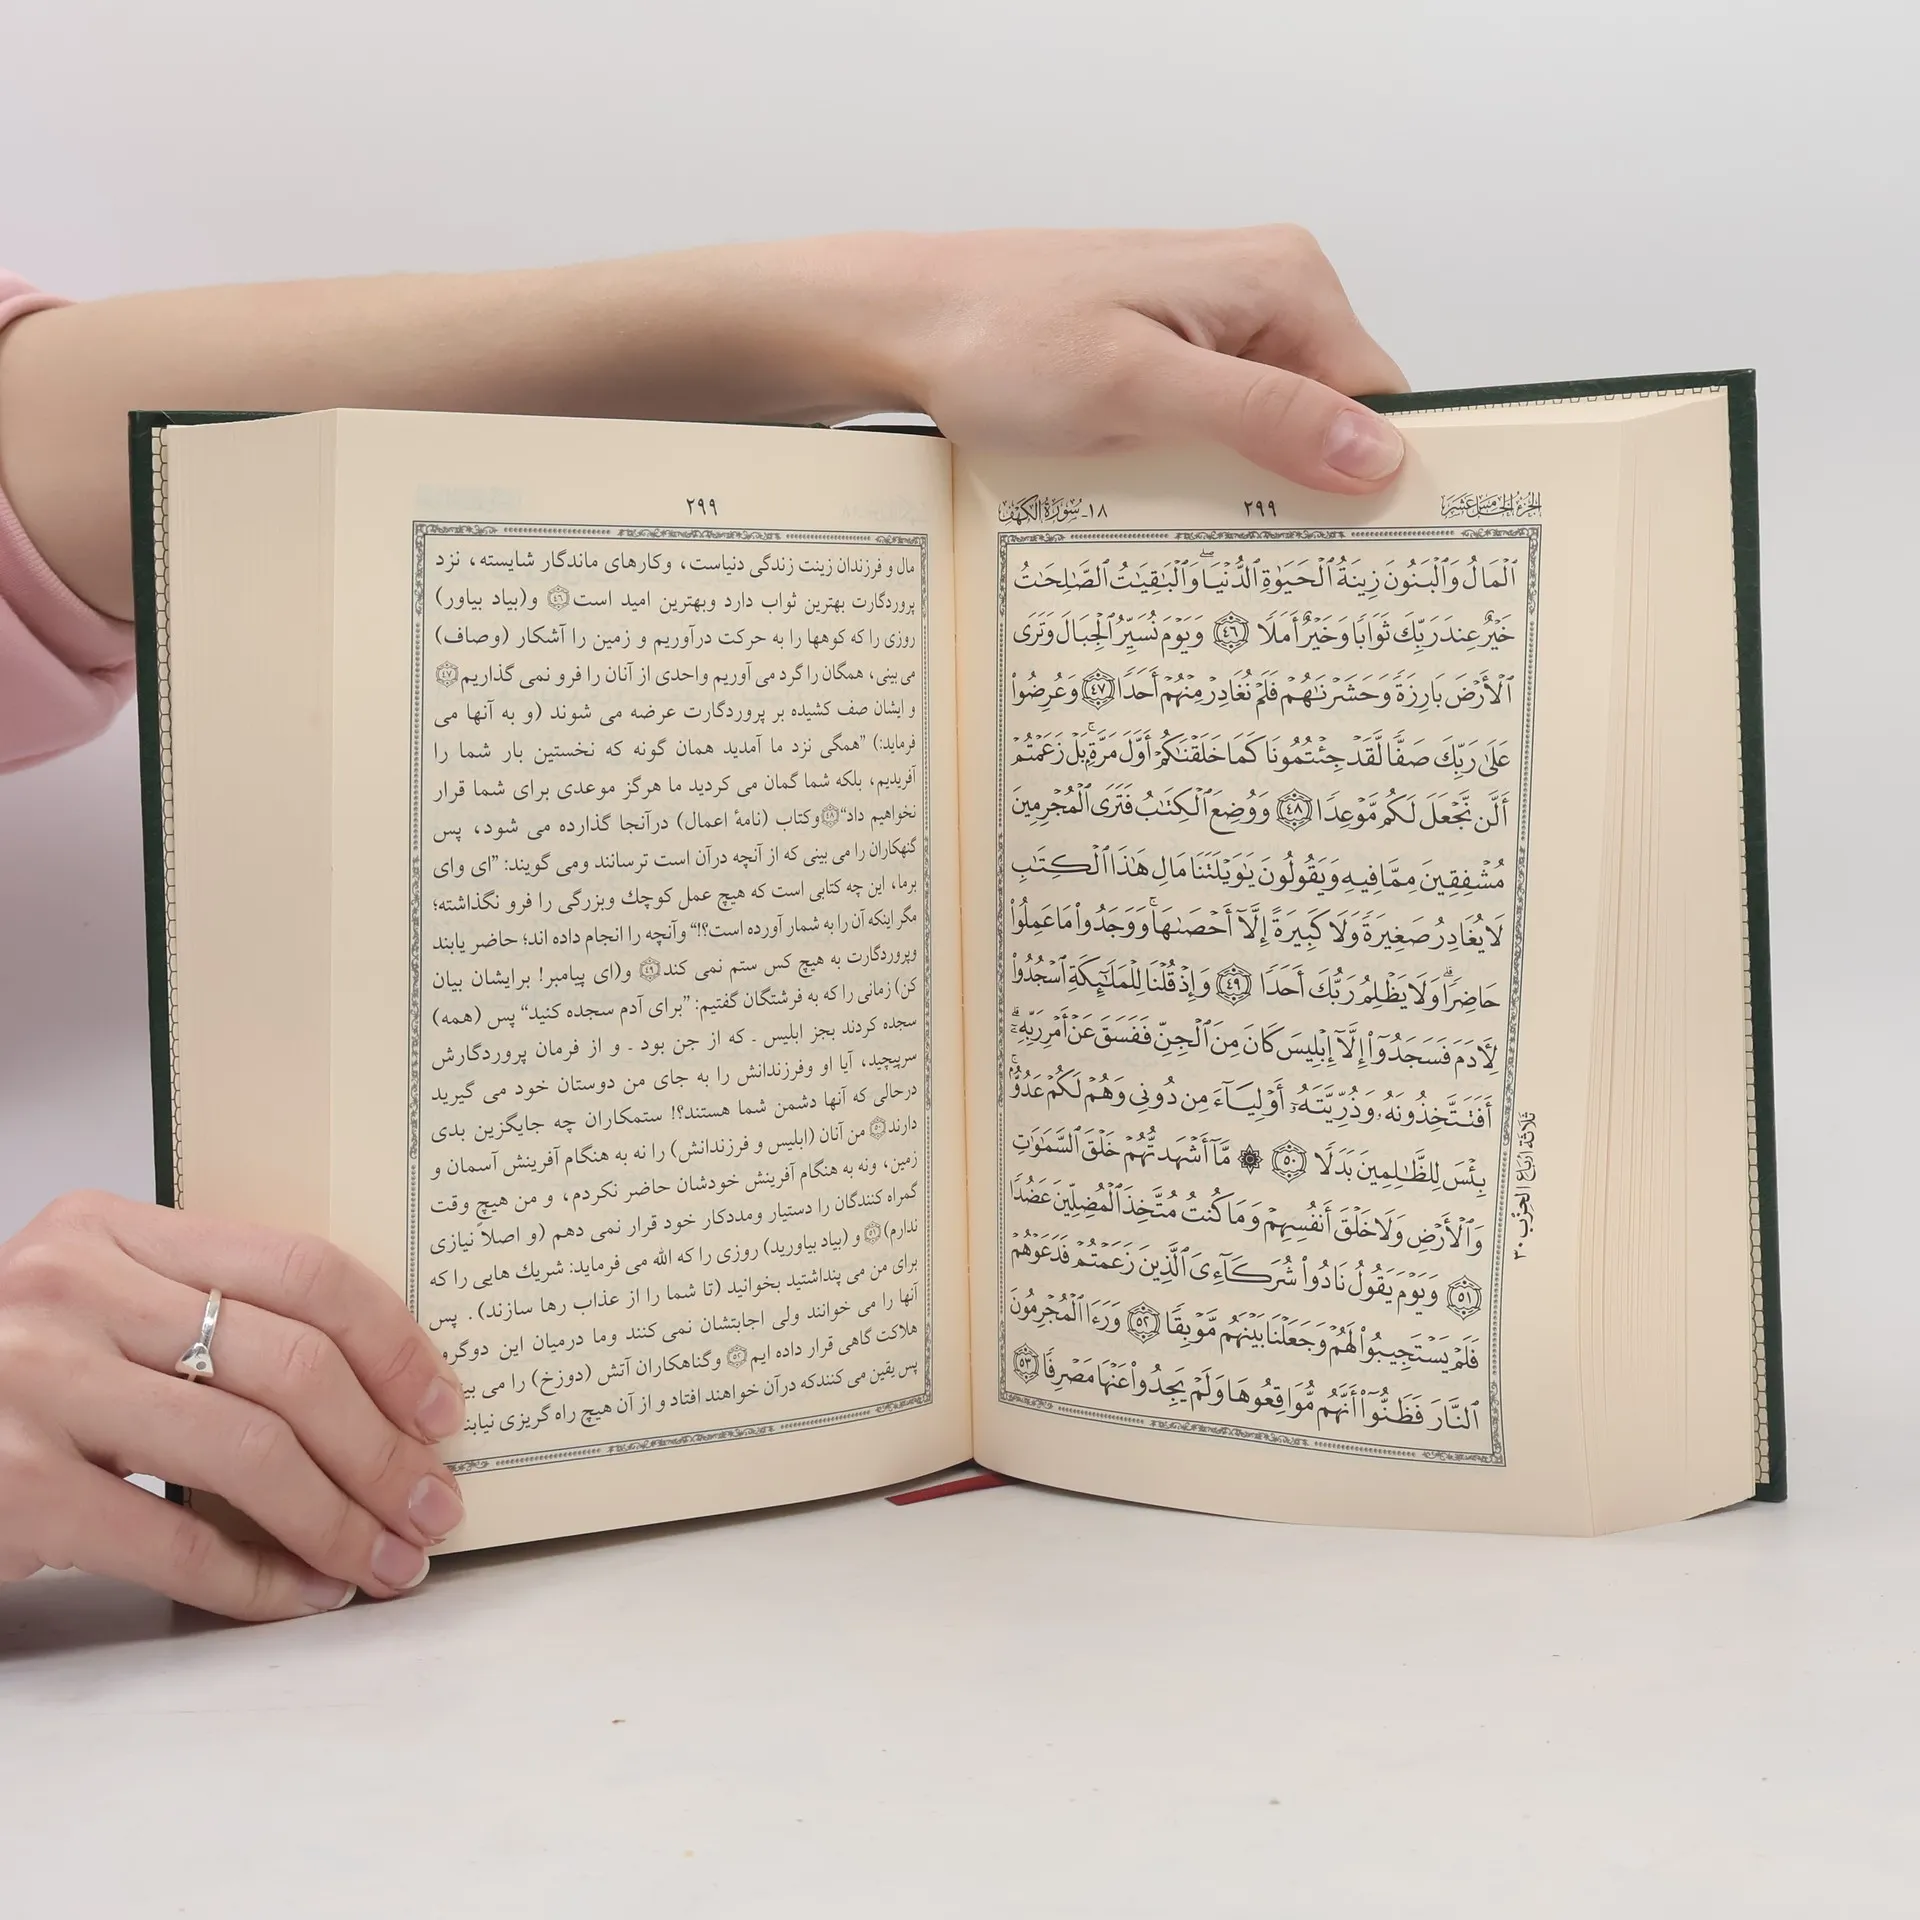 الجزء الخامس عشر
٢٩٩
١٨ـ سورة الكهف
ٱلۡمَالُ وَٱلۡبَنُونَ زِينَةُ ٱلۡحَيَوٰةِ ٱلدُّنۡيَاۖ وَٱلۡبَٰقِيَٰتُ ٱلصَّٰلِحَٰتُ
خَيۡرٌ عِندَ رَبِّكَ ثَوَابٗا وَخَيۡرٌ أَمَلٗا ٤٦ وَيَوۡمَ نُسَيِّرُ ٱلۡجِبَالَ وَتَرَى
ٱلۡأَرۡضَ بَارِزَةٗ وَحَشَرۡنَٰهُمۡ فَلَمۡ نُغَادِرۡ مِنۡهُمۡ أَحَدٗا ٤٧ وَعُرِضُواْ
عَلَىٰ رَبِّكَ صَفّٗا لَّقَدۡ جِئۡتُمُونَا كَمَا خَلَقۡنَٰكُمۡ أَوَّلَ مَرَّةِۭۚ بَلۡ زَعَمۡتُمۡ
أَلَّن نَّجۡعَلَ لَكُم مَّوۡعِدٗا ٤٨ وَوُضِعَ ٱلۡكِتَٰبُ فَتَرَى ٱلۡمُجۡرِمِينَ
مُشۡفِقِينَ مِمَّا فِيهِ وَيَقُولُونَ يَٰوَيۡلَتَنَا مَالِ هَٰذَا ٱلۡكِتَٰبِ
لَا يُغَادِرُ صَغِيرَةٗ وَلَا كَبِيرَةً إِلَّآ أَحۡصَىٰهَاۚ وَوَجَدُواْ مَا عَمِلُواْ
حَاضِرٗاۗ وَلَا يَظۡلِمُ رَبُّكَ أَحَدٗا ٤٩ وَإِذۡ قُلۡنَا لِلۡمَلَٰٓئِكَةِ ٱسۡجُدُواْ
لِأٓدَمَ فَسَجَدُوٓاْ إِلَّآ إِبۡلِيسَ كَانَ مِنَ ٱلۡجِنِّ فَفَسَقَ عَنۡ أَمۡرِ رَبِّهِۦٓۗ
أَفَتَتَّخِذُونَهُۥ وَذُرِّيَّتَهُۥٓ أَوۡلِيَآءَ مِن دُونِي وَهُمۡ لَكُمۡ عَدُوُّۢۚ
بِئۡسَ لِلظَّٰلِمِينَ بَدَلٗا ٥٠ ۞ مَّآ أَشۡهَدتُّهُمۡ خَلۡقَ ٱلسَّمَٰوَٰتِ
وَٱلۡأَرۡضِ وَلَا خَلۡقَ أَنفُسِهِمۡ وَمَا كُنتُ مُتَّخِذَ ٱلۡمُضِلِّينَ عَضُدٗا
٥١ وَيَوۡمَ يَقُولُ نَادُواْ شُرَكَآءِيَ ٱلَّذِينَ زَعَمۡتُمۡ فَدَعَوۡهُمۡ
فَلَمۡ يَسۡتَجِيبُواْ لَهُمۡ وَجَعَلۡنَا بَيۡنَهُم مَّوۡبِقٗا ٥٢ وَرَءَا ٱلۡمُجۡرِمُونَ
ٱلنَّارَ فَظَنُّوٓاْ أَنَّهُم مُّوَاقِعُوهَا وَلَمۡ يَجِدُواْ عَنۡهَا مَصۡرِفٗا ٥٣
ثلاثة أرباع الحزب ٣٠
٢٩٩
مال و فرزندان زینت زندگی دنیاست، وکارهای ماندگار شایسته، نزد
پروردگارت بهترین ثواب دارد وبهترین امید است ٤٦ و(بیاد بیاور)
روزی را که کوهها را به حرکت درآوریم و زمین را آشکار (وصاف)
می بینی، همگان را گرد می آوریم واحدی از آنان را فرو نمی گذاریم ٤٧
و ایشان صف کشیده بر پروردگارت عرضه می شوند (و به آنها می
فرماید:) "همگی نزد ما آمدید همان گونه که نخستین بار شما را
آفریدیم، بلکه شما گمان می کردید ما هرگز موعدی برای شما قرار
نخواهیم داد" ٤٨ وکتاب (نامهٔ اعمال) درآنجا گذارده می شود، پس
گنهکاران را می بینی که از آنچه درآن است ترسانند ومی گویند: "ای وای
برما، این چه کتابی است که هیچ عمل کوچک وبزرگی را فرو نگذاشته؛
مگر اینکه آن را به شمار آورده است؟!" وآنچه را انجام داده اند؛ حاضر یابند
وپروردگارت به هیچ کس ستم نمی کند ٤٩ و(ای پیامبر! برایشان بیان
کن) زمانی را که به فرشتگان گفتیم: "برای آدم سجده کنید" پس (همه)
سجده کردند بجز ابلیس ـ که از جن بود ـ و از فرمان پروردگارش
سرپیچید، آیا او وفرزندانش را به جای من دوستان خود می گیرید
درحالی که آنها دشمن شما هستند؟! ستمکاران چه جایگزین بدی
دارند ٥٠ من آنان (ابلیس و فرزندانش) را نه به هنگام آفرینش آسمان و
زمین، ونه به هنگام آفرینش خودشان حاضر نکردم، و من هیچ وقت
گمراه کنندگان را دستیار ومددکار خود قرار نمی دهم (و اصلاً نیازی
ندارم) ٥١ و (بیاد بیاورید) روزی را که الله می فرماید: شریک هایی را که
برای من می پنداشتید بخوانید (تا شما را از عذاب رها سازند). پس
آنها را می خوانند ولی اجابتشان نمی کنند وما درمیان این دوگرو
هلاکت گاهی قرار داده ایم ٥٢ وگناهکاران آتش (دوزخ) را می
پس یقین می کنندکه درآن خواهند افتاد و از آن هیچ راه گریزی